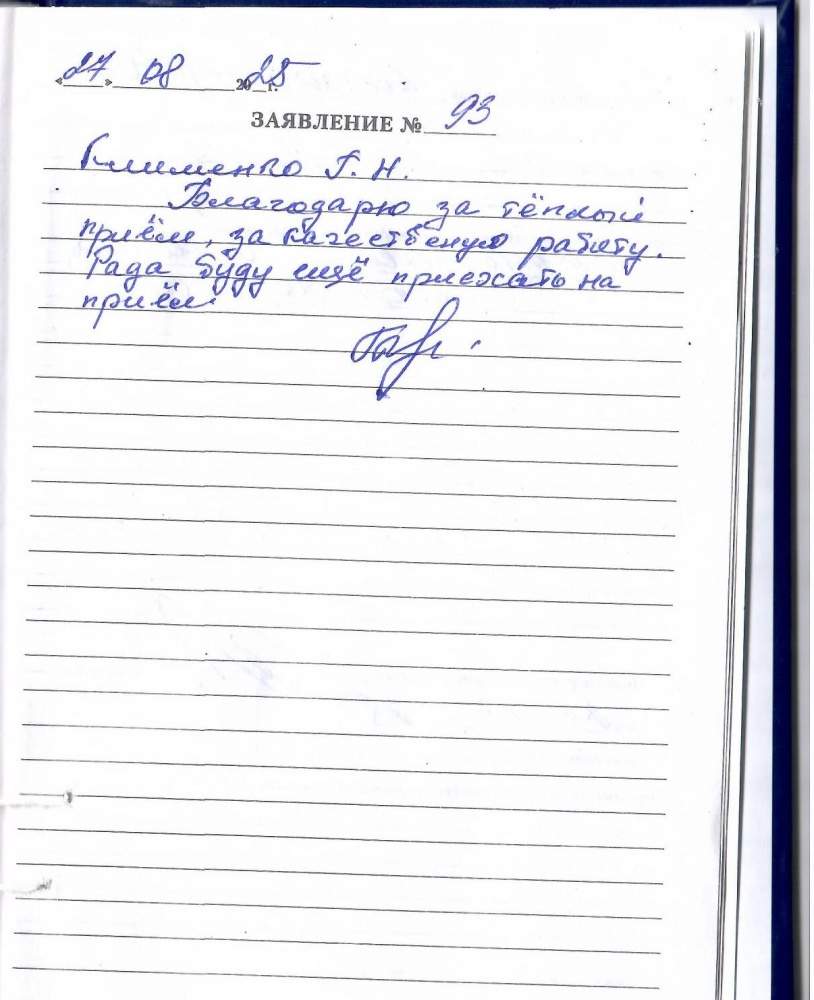 «27» 08 2025 г.
ЗАЯВЛЕНИЕ № 93
Клименко Г. Н.
Благодарю за тёплый
приём, за качественую работу.
Рада буду ещё приезжать на
приём.